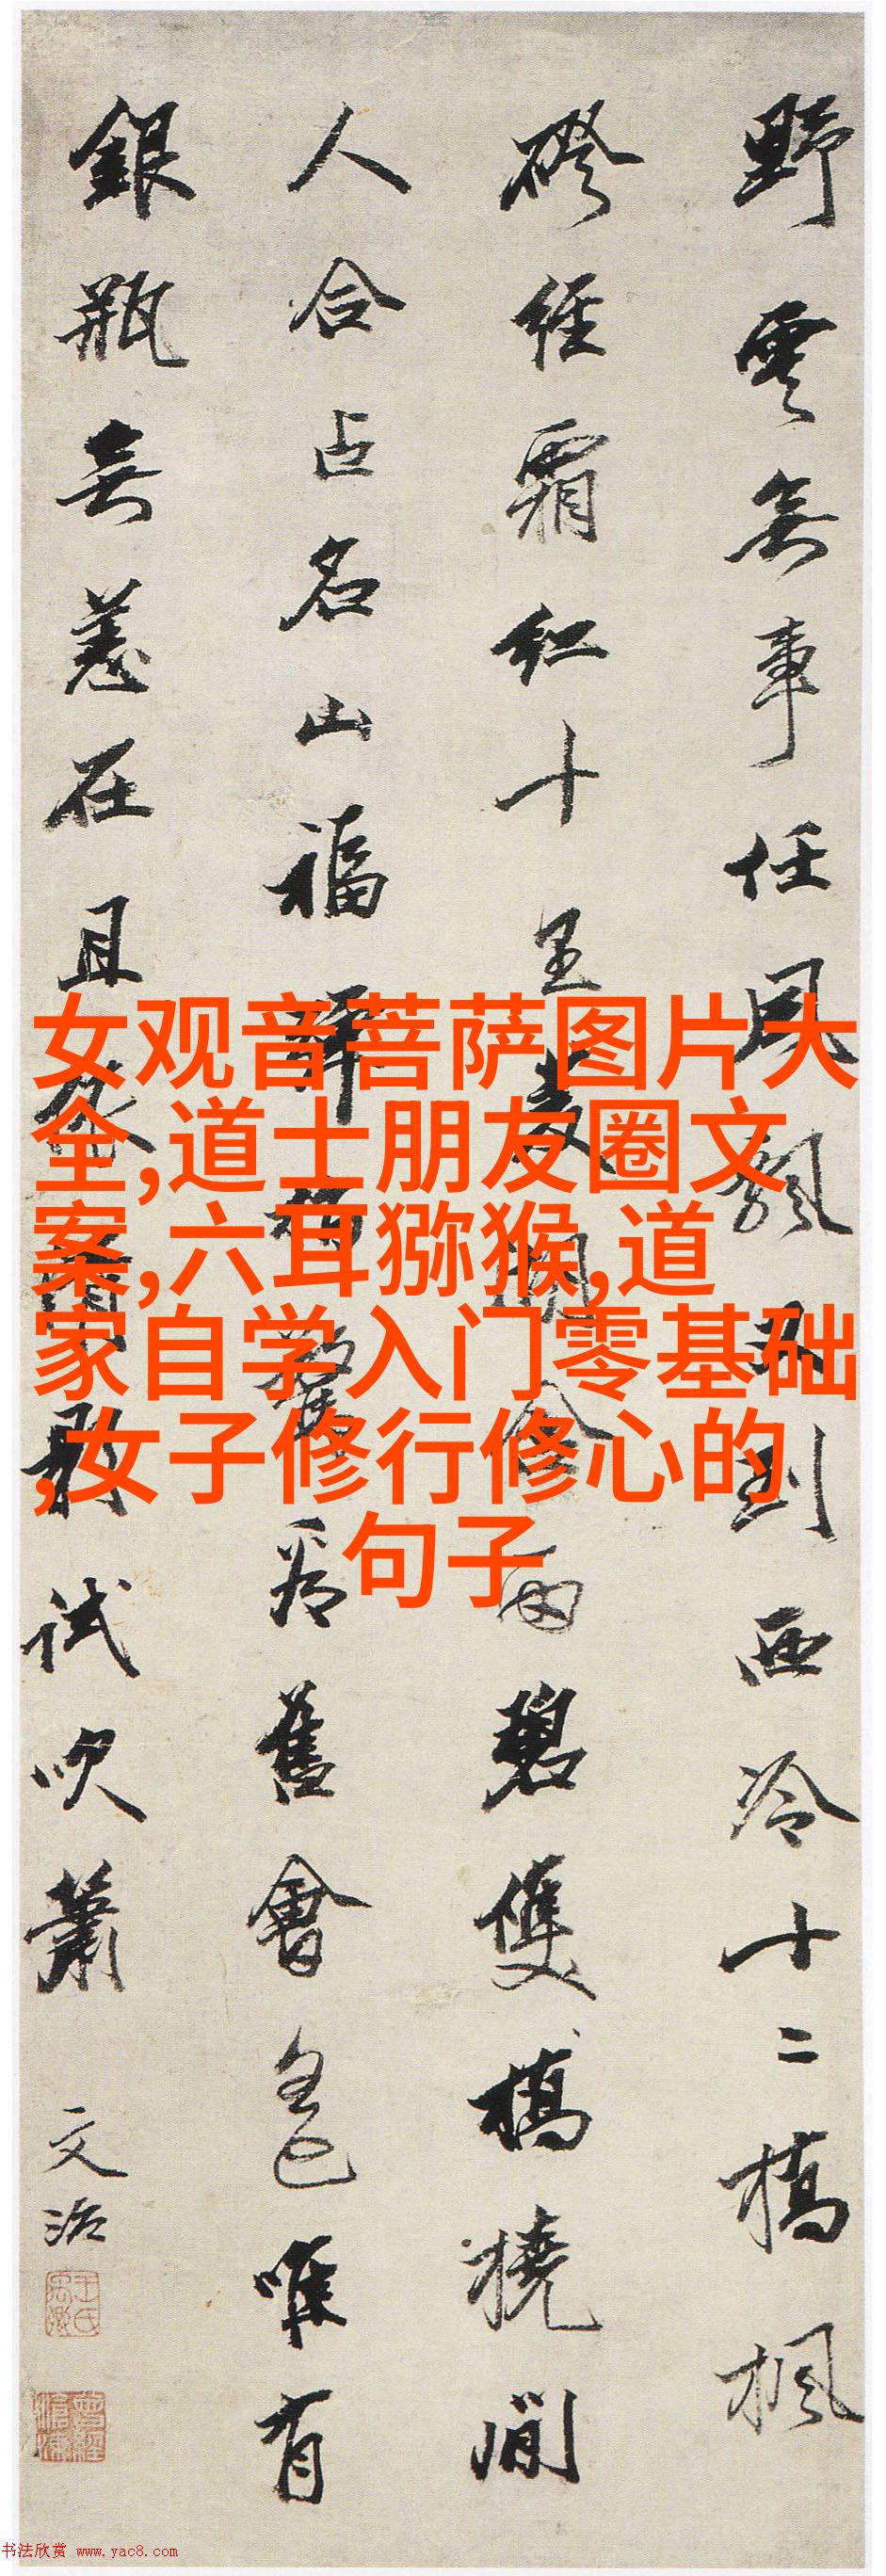 野雲無事任風飄 到西冷十二橋楓
磴經霜紅十里 雨碧雙橋橈間
人合占名山福 舊會 唯有
銀瓶無恙在且 試吹簫
文治
王氏禹卿
曾經滄海
女观音菩萨图片大
全,道士朋友圈文
案,六耳猕猴,道
家自学入门零基础
,女子修行修心的
句子
书法欣赏 www.yac8.com